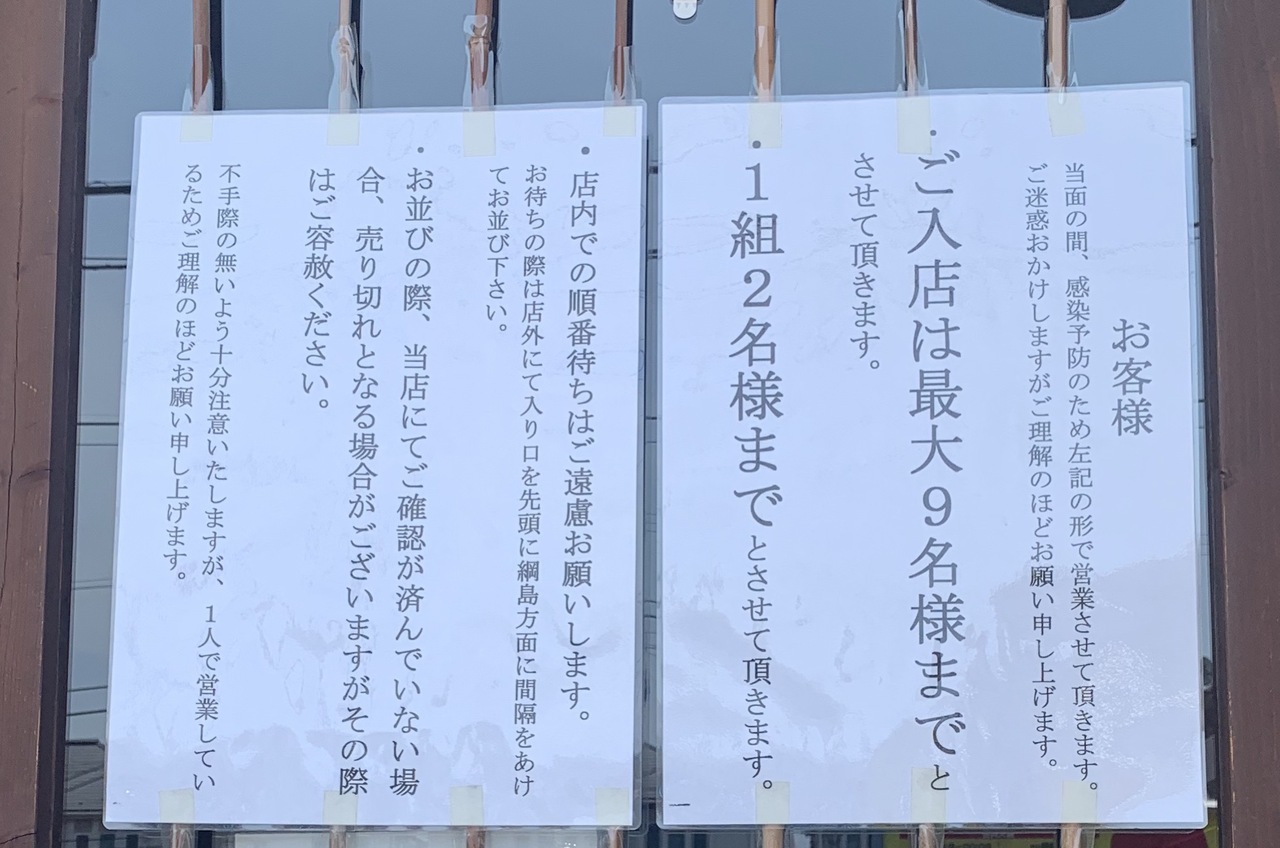 お客様
当面の間、感染予防のため左記の形で営業させて頂きます。
ご迷惑おかけしますがご理解のほどお願い申し上げます。
・ご入店は最大9名様までと
させて頂きます。
・1組2名様までとさせて頂きます。
・店内での順番待ちはご遠慮お願いします。
お待ちの際は店外にて入り口を先頭に綱島方面に間隔をあけ
てお並び下さい。
・お並びの際、当店にてご確認が済んでいない場
合、売り切れとなる場合がございますがその際
はご容赦ください。
不手際の無いよう十分注意いたしますが、1人で営業してい
るためご理解のほどお願い申し上げます。